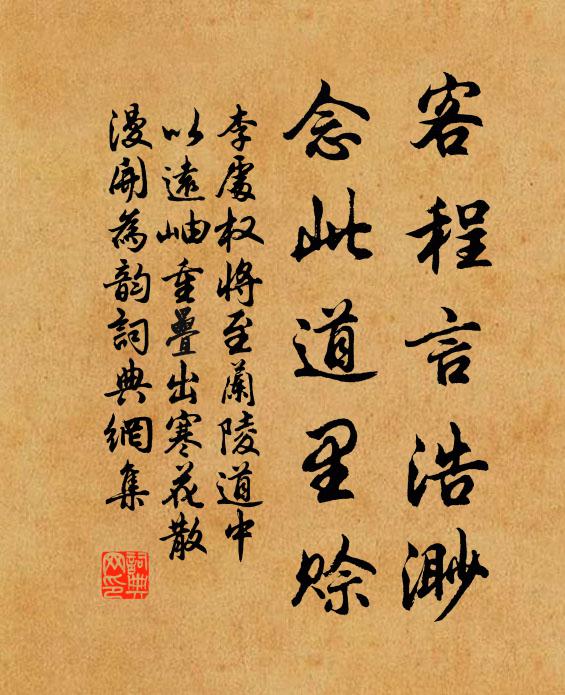 客程言浩渺
念此道里賒
李處权將至蘭陵道中
以遠岫重疊出寒花散
漫開為韵詞典網集
詞典网印